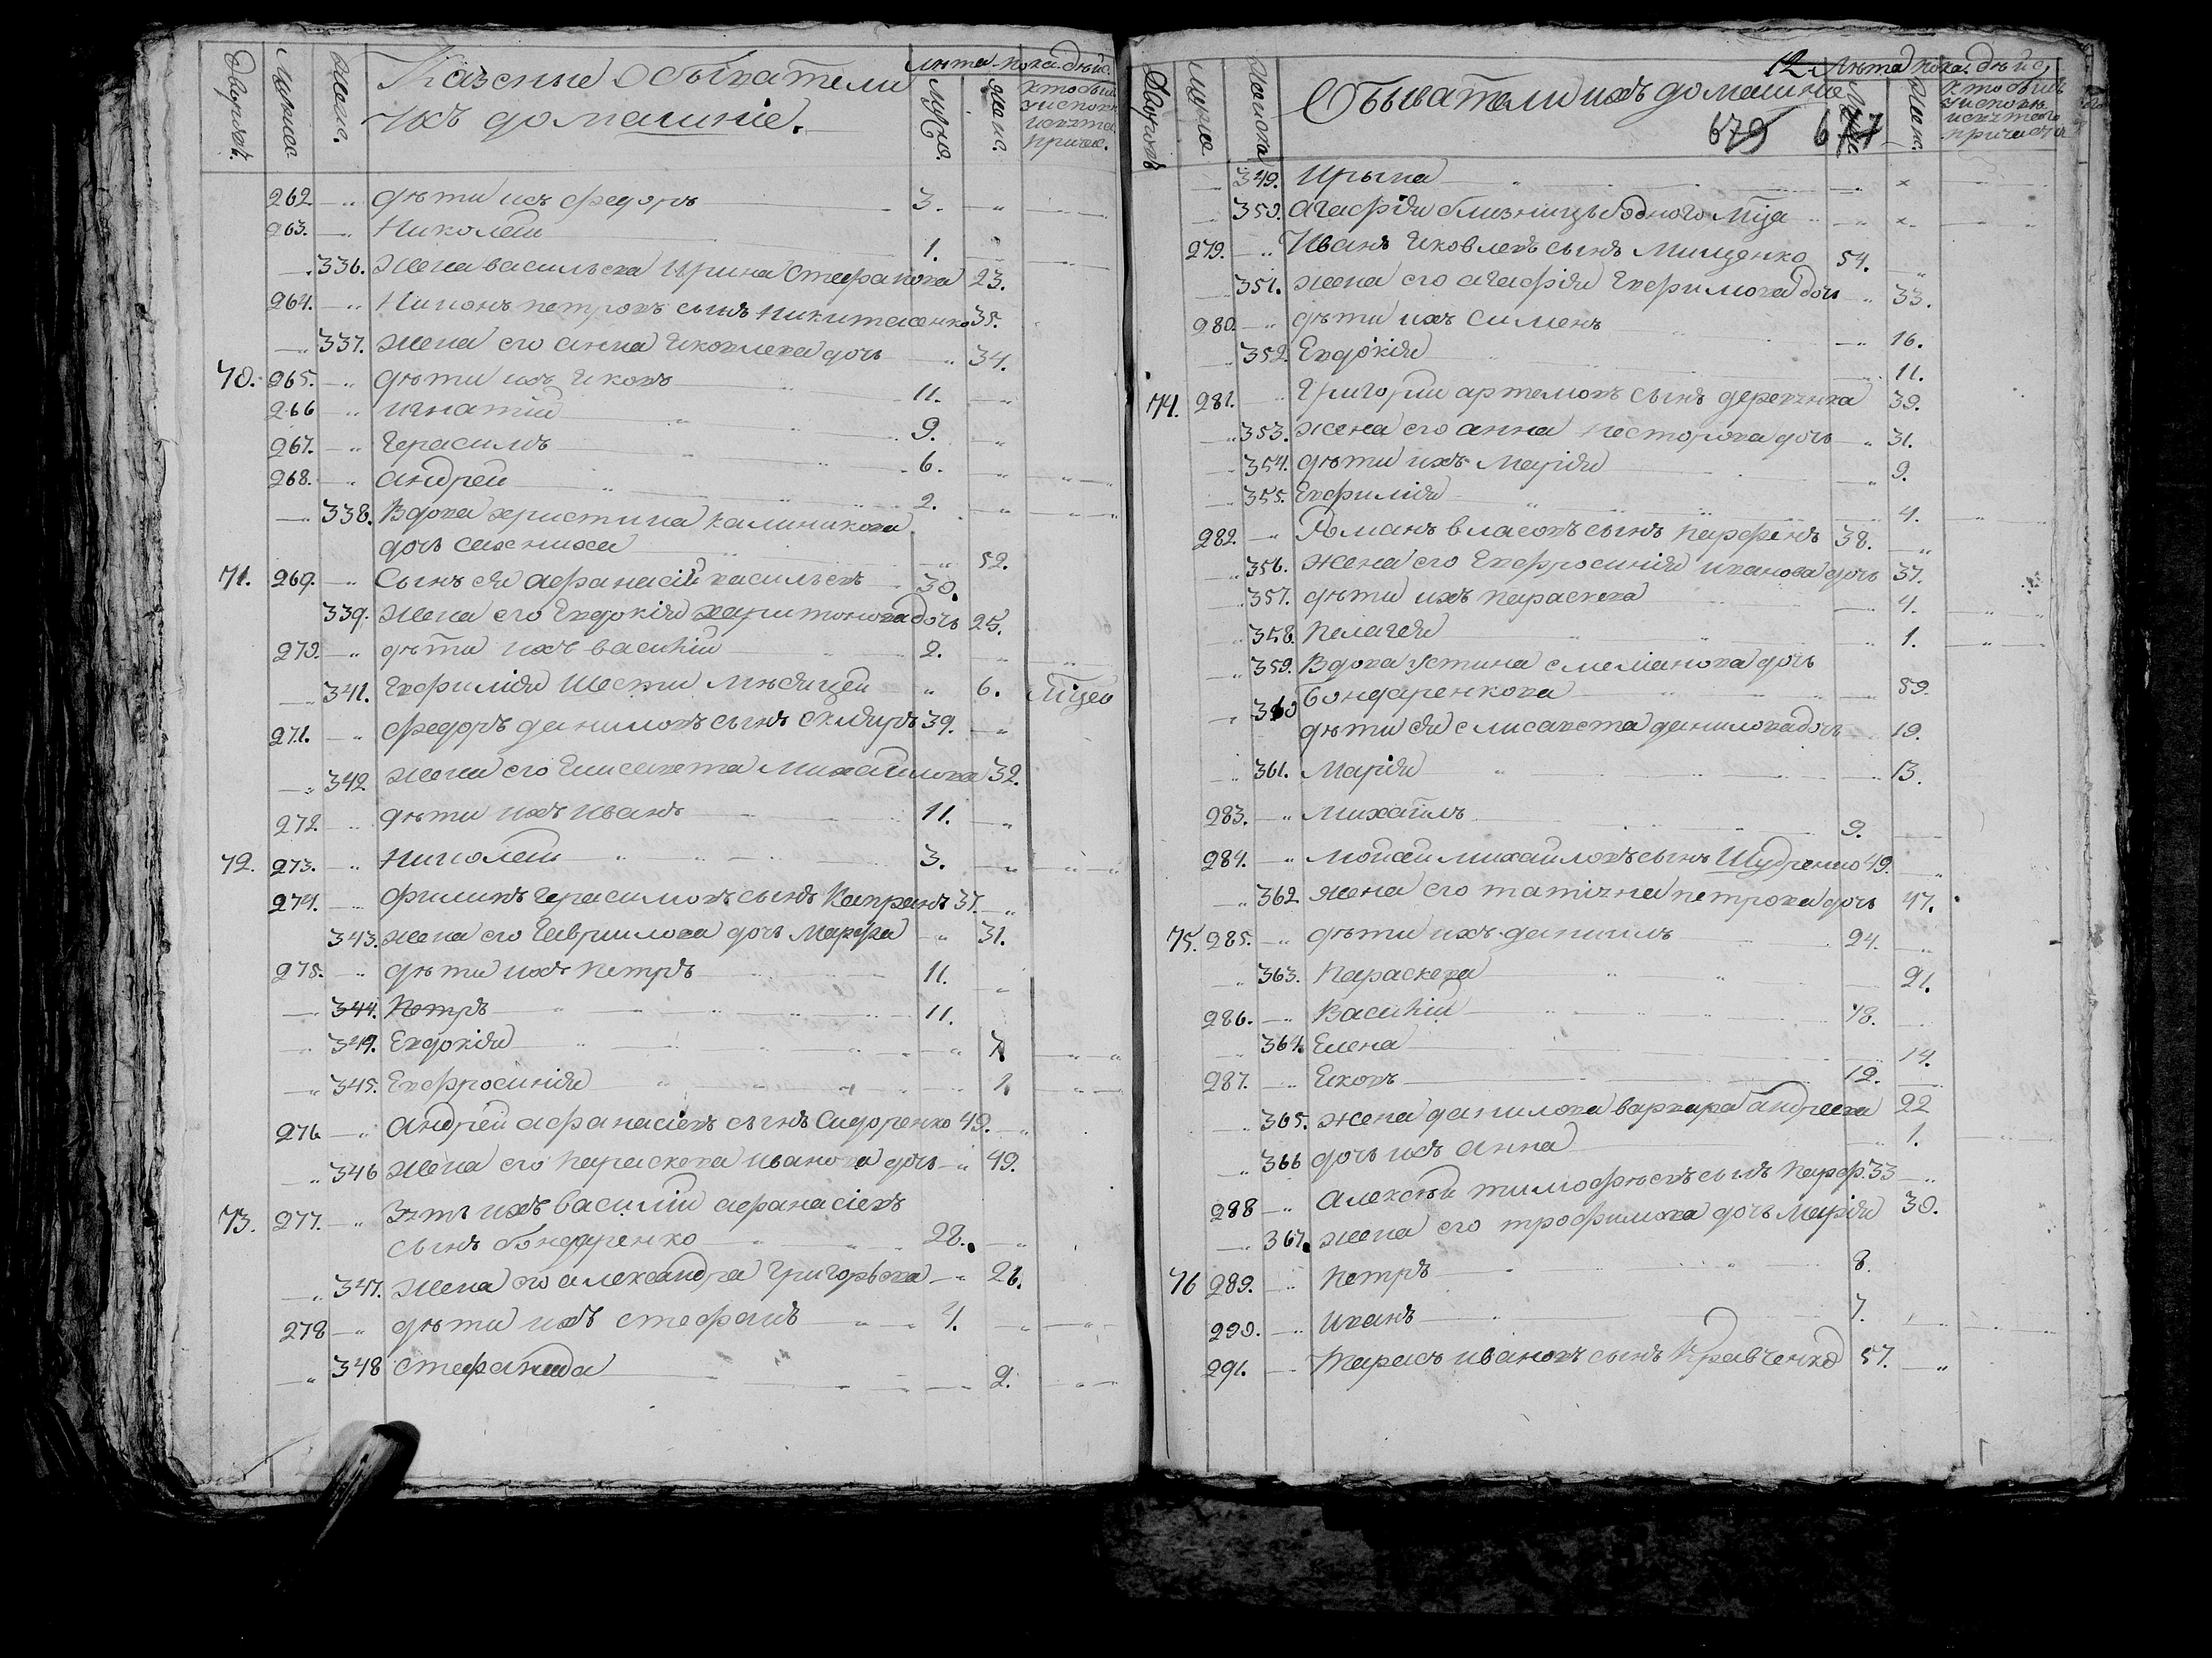 Дворовъ. Мужеска Женска. Казенные Обыватели Лѣта кто былъ
ихъ домашніе. Мужс. Женс. у исповѣ
262 — „ дѣти ихъ Федоръ 3. — „
263. — Николай 1. „
— 336. Жена васильева Ирина Стефанова 23.
264. — „ Никонъ петровъ сынъ Никитасенко 35.
— 337. жена его анна Яковлева дочь — „ 34.
70. 265. — „ дѣти ихъ Яковъ 11. — „
266 — „ игнатій 9. — „
267. — „ Герасимъ 6. „
268. — „ андрей 2. — „
— 338. Вдова христина калиникова
дочь Сахниха — „ 52.
71. 269. — „ Сынъ ея афанасій васильевъ 30.
339. Жена его Евдокія харитонова дочь 25.
270. — „ дѣти ихъ василій 2. — „
— 341. Евфимія Шести Мѣсяцей „ 6. Мцей
271. — „ федоръ даниловъ сынъ Скляръ 39. — „
— „ 342 жена его Елисавета Михайлова 32.
272. — дѣти ихъ Иванъ 11. — „
72. 273. — „ Николай 3. — „
274. — Филипъ Герасимовъ сынъ Капранъ 37. — „
343. жена его Гавриилова дочь Марфа — „ 31.
275. — „ дѣти ихъ петръ 11. „
— 344. Петръ 11.
„ 344. Евдокія — „ 7.
— „ 345. Евфросинія 1.
276 — „ Андрей афанасіевъ сынъ Сидоренко 49. — „
„ 346 жена его параскева иванова дочь — „ 49.
73. 277. — „ Зять ихъ василій афанасіевъ
сынъ бондаренко 28. — „
— „ 347. жена его александра Григорьева — „ 26.
278 — „ дѣти ихъ стефанъ 4. — „
— „ 348 стефанида 2.
12. Лѣта
Дворовъ Мужес. Женска Обыватели ихъ домашніе Женс. кто былъ
679 677
— 349. Ирына
— 350. Агафія близницы
279. — „ Иванъ Яковлевъ сынъ Мищенко 54. — „
— 351. жена его агафія Ефимова дочь „ 33.
280. — „ дѣти ихъ Сименъ — „ 16.
— 352. Евдокія 11.
74. 281. — „ Григорій артемовъ сынъ деревянка 39.
— „ 353. жена его анна несторова дочь — „ 31.
— 354. дѣти ихъ Марія — „ 9.
— 355. Евфимія 4.
282. — „ Романъ власовъ сынъ Парфенъ 38. — „
„ 356. жена его Евфросинія иванова дочь 37.
„ 357. дѣти ихъ параскева — 4.
„ 358. Пелагея „ 1.
„ 359. Вдова устина
бондаренкова — 59.
— „ 360 дѣти ея елисавета данилова дочь 19.
— „ 361. Марія — 13.
283. — „ Михаилъ 9. —
284. — „ мойсей михайловъ сынъ Шудренко 49. „
— „ 362. жена его татіяна петрова дочь 47.
75. 285. — „ дѣти ихъ данилъ 24. „
„ 363. Параскева 21.
286. — „ Василій 18.
„ 364. Елена — 14.
287. — „ Яковъ 12. —
— „ 365. жена данилова варвара андреева 22
„ 366 дочь ихъ анна 1.
288 — „ Алексѣй тимофѣевъ сынъ парф. 33 — „
— „ 367. жена его трофимова дочь Марія 30.
76 289. — „ Петръ 8.
290. — „ иванъ 7.
291. — Тарасъ ивановъ сынъ Кравченко 57. — „